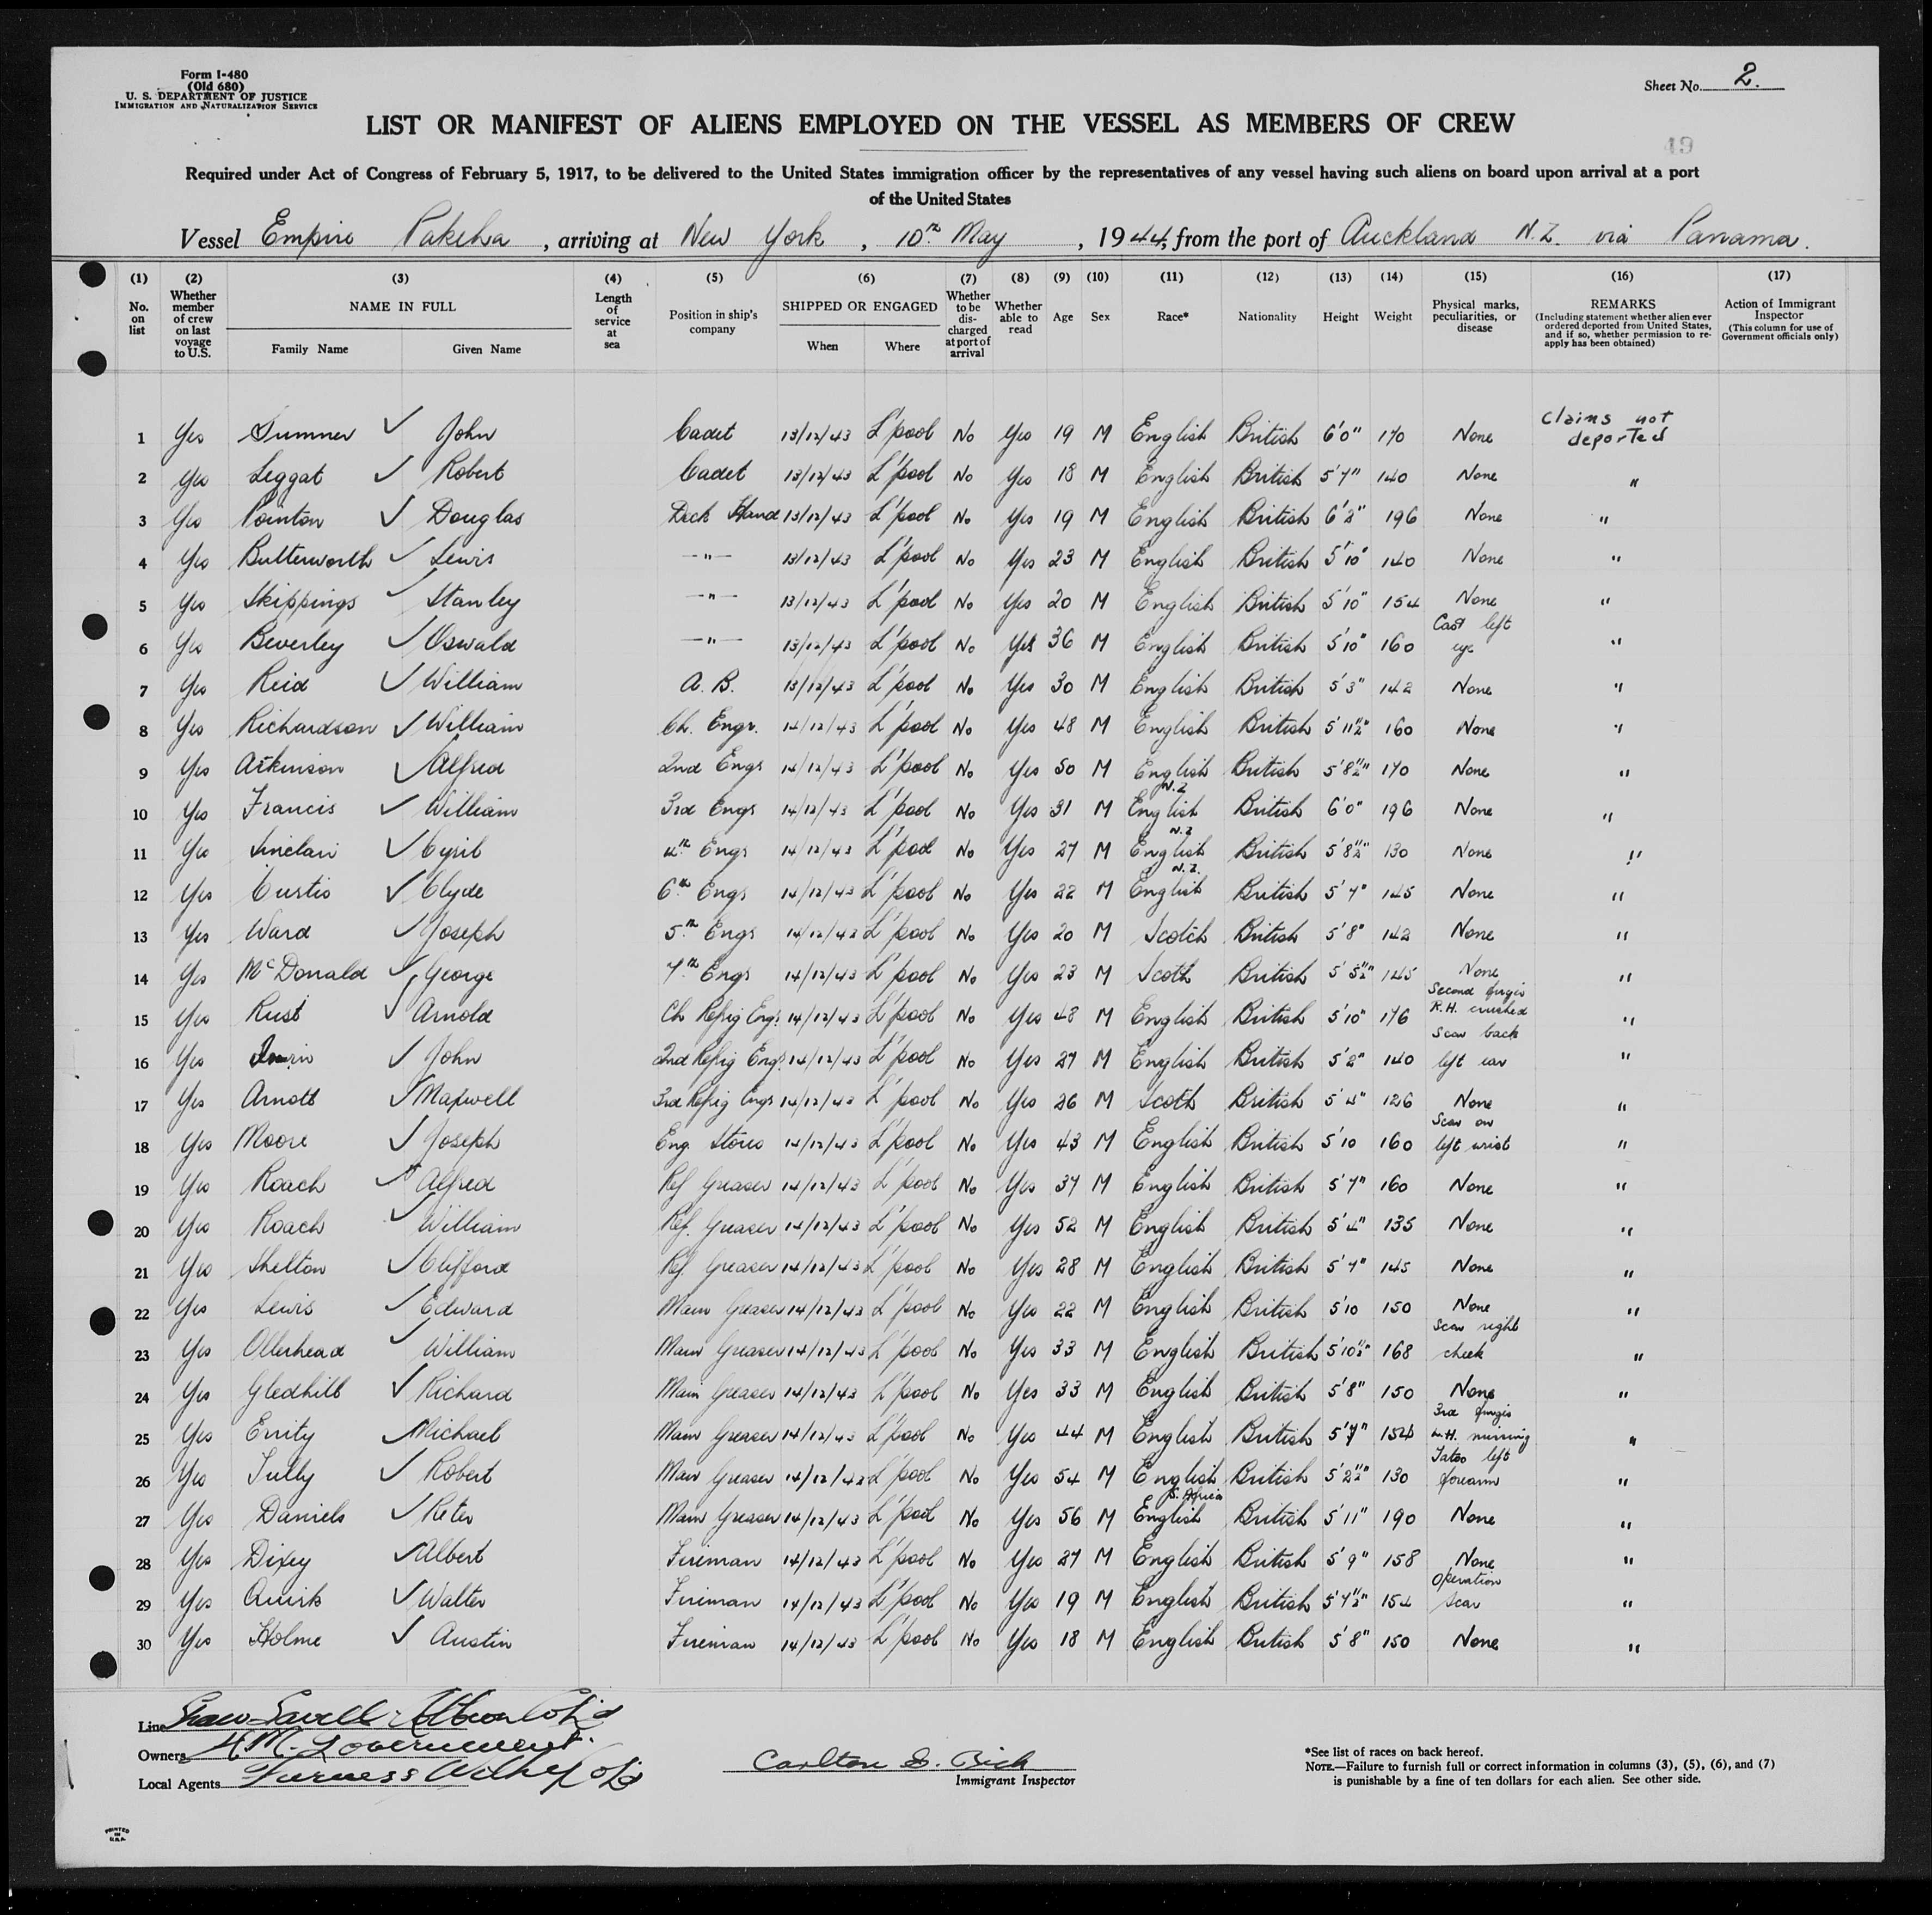 Form I-480
(Old 680)
U. S. DEPARTMENT OF JUSTICE
IMMIGRATION AND NATURALIZATION SERVICE
Sheet No. 2.
LIST OR MANIFEST OF ALIENS EMPLOYED ON THE VESSEL AS MEMBERS OF CREW
49
Required under Act of Congress of February 5, 1917, to be delivered to the United States immigration officer by the representatives of any vessel having such aliens on board upon arrival at a port
of the United States
Vessel Empire Pakeha, arriving at New York, 10th May, 1944, from the port of Auckland N.Z. via Panama.
(1) No. on list (2) Whether member of crew on last voyage to U.S. (3) NAME IN FULL Family Name Given Name (4) Length of service at sea (5) Position in ship's company (6) SHIPPED OR ENGAGED When Where (7) Whether to be discharged at port of arrival (8) Whether able to read (9) Age (10) Sex (11) Race* (12) Nationality (13) Height (14) Weight (15) Physical marks, peculiarities, or disease (16) REMARKS (Including statement whether alien ever ordered deported from United States, and if so, whether permission to re-apply has been obtained) (17) Action of Immigrant Inspector (This column for use of Government officials only)
1 Yes Sumner ✓ John Cadet 13/12/43 L'pool No Yes 19 M English British 6'0" 170 None Claims not deported
2 Yes Leggat ✓ Robert Cadet 13/12/43 L'pool No Yes 18 M English British 5'7" 140 None "
3 Yes Pointon ✓ Douglas Deck Hand 13/12/43 L'pool No Yes 19 M English British 6'2" 196 None "
4 Yes Butterworth ✓ Lewis —"— 13/12/43 L'pool No Yes 23 M English British 5'10" 140 None "
5 Yes Skippings ✓ Stanley —"— 13/12/43 L'pool No Yes 20 M English British 5'10" 154 None "
6 Yes Beverley ✓ Oswald —"— 13/12/43 L'pool No Yes 36 M English British 5'10" 160 Cast left eye "
7 Yes Reid ✓ William A. B. 13/12/43 L'pool No Yes 30 M English British 5'3" 142 None "
8 Yes Richardson ✓ William Ch. Engr. 14/12/43 L'pool No Yes 48 M English British 5'11½" 160 None "
9 Yes Atkinson ✓ Alfred 2nd Engr 14/12/43 L'pool No Yes 50 M English British 5'8½" 170 None "
10 Yes Francis ✓ William 3rd Engr 14/12/43 L'pool No Yes 31 M N.Z English British 6'0" 196 None "
11 Yes Sinclair ✓ Cyril 4th Engr 14/12/43 L'pool No Yes 27 M N.Z English British 5'8½" 130 None "
12 Yes Curtis ✓ Clyde 6th Engr 14/12/43 L'pool No Yes 22 M N.Z. English British 5'7" 145 None "
13 Yes Ward ✓ Joseph 5th Engr 14/12/43 L'pool No Yes 20 M Scotch British 5'8" 142 None "
14 Yes McDonald ✓ George 7th Engr 14/12/43 L'pool No Yes 23 M Scoth British 5'5½" 145 None "
15 Yes Rust ✓ Arnold Ch Refrig Engr 14/12/43 L'pool No Yes 48 M English British 5'10" 176 Second finger R.H. crushed "
16 Yes ✓ John 2nd Refrig Engr 14/12/43 L'pool No Yes 27 M English British 5'2" 140 Scar back left ear "
17 Yes Arnott ✓ Maxwell 3rd Refrig Engr 14/12/43 L'pool No Yes 26 M Scoth British 5'4" 126 None "
18 Yes Moore ✓ Joseph Eng. Stores 14/12/43 L'pool No Yes 43 M English British 5'10 160 Scar on left wrist "
19 Yes Roach ✓ Alfred Ref Greaser 14/12/43 L'pool No Yes 37 M English British 5'7" 160 None "
20 Yes Roach ✓ William Ref. Greaser 14/12/43 L'pool No Yes 52 M English British 5'4" 135 None "
21 Yes Shelton ✓ Clifford Ref. Greaser 14/12/43 L'pool No Yes 28 M English British 5'7" 145 None "
22 Yes Lewis ✓ Edward Main Greaser 14/12/43 L'pool No Yes 22 M English British 5'10 150 None "
23 Yes Ollerhead ✓ William Main Greaser 14/12/43 L'pool No Yes 33 M English British 5'10½" 168 Scar right cheek "
24 Yes Gledhill ✓ Richard Main Greaser 14/12/43 L'pool No Yes 33 M English British 5'8" 150 None "
25 Yes Errity ✓ Michael Main Greaser 14/12/43 L'pool No Yes 44 M English British 5'7" 154 3rd finger L.H. missing "
26 Yes Tully ✓ Robert Main Greaser 14/12/43 L'pool No Yes 54 M English British 5'2½" 130 Tatoo left forearm "
27 Yes Daniels ✓ Peter Main Greaser 14/12/43 L'pool No Yes 56 M S. Africa English British 5'11" 190 None "
28 Yes Dixey ✓ Albert Fireman 14/12/43 L'pool No Yes 27 M English British 5'9" 158 None "
29 Yes Quirk ✓ Walter Fireman 14/12/43 L'pool No Yes 19 M English British 5'7½" 154 Operation Scar "
30 Yes Holme ✓ Austin Fireman 14/12/43 L'pool No Yes 18 M English British 5'8" 150 None "
Line Shaw Savill & Albion Co Ltd
Owners H.M. Government.
Local Agents Furness Withy Co Ltd
Carlton Rich
Immigrant Inspector
*See list of races on back hereof.
NOTE.—Failure to furnish full or correct information in columns (3), (5), (6), and (7)
is punishable by a fine of ten dollars for each alien. See other side.
PRINTED
IN
U.S.A.